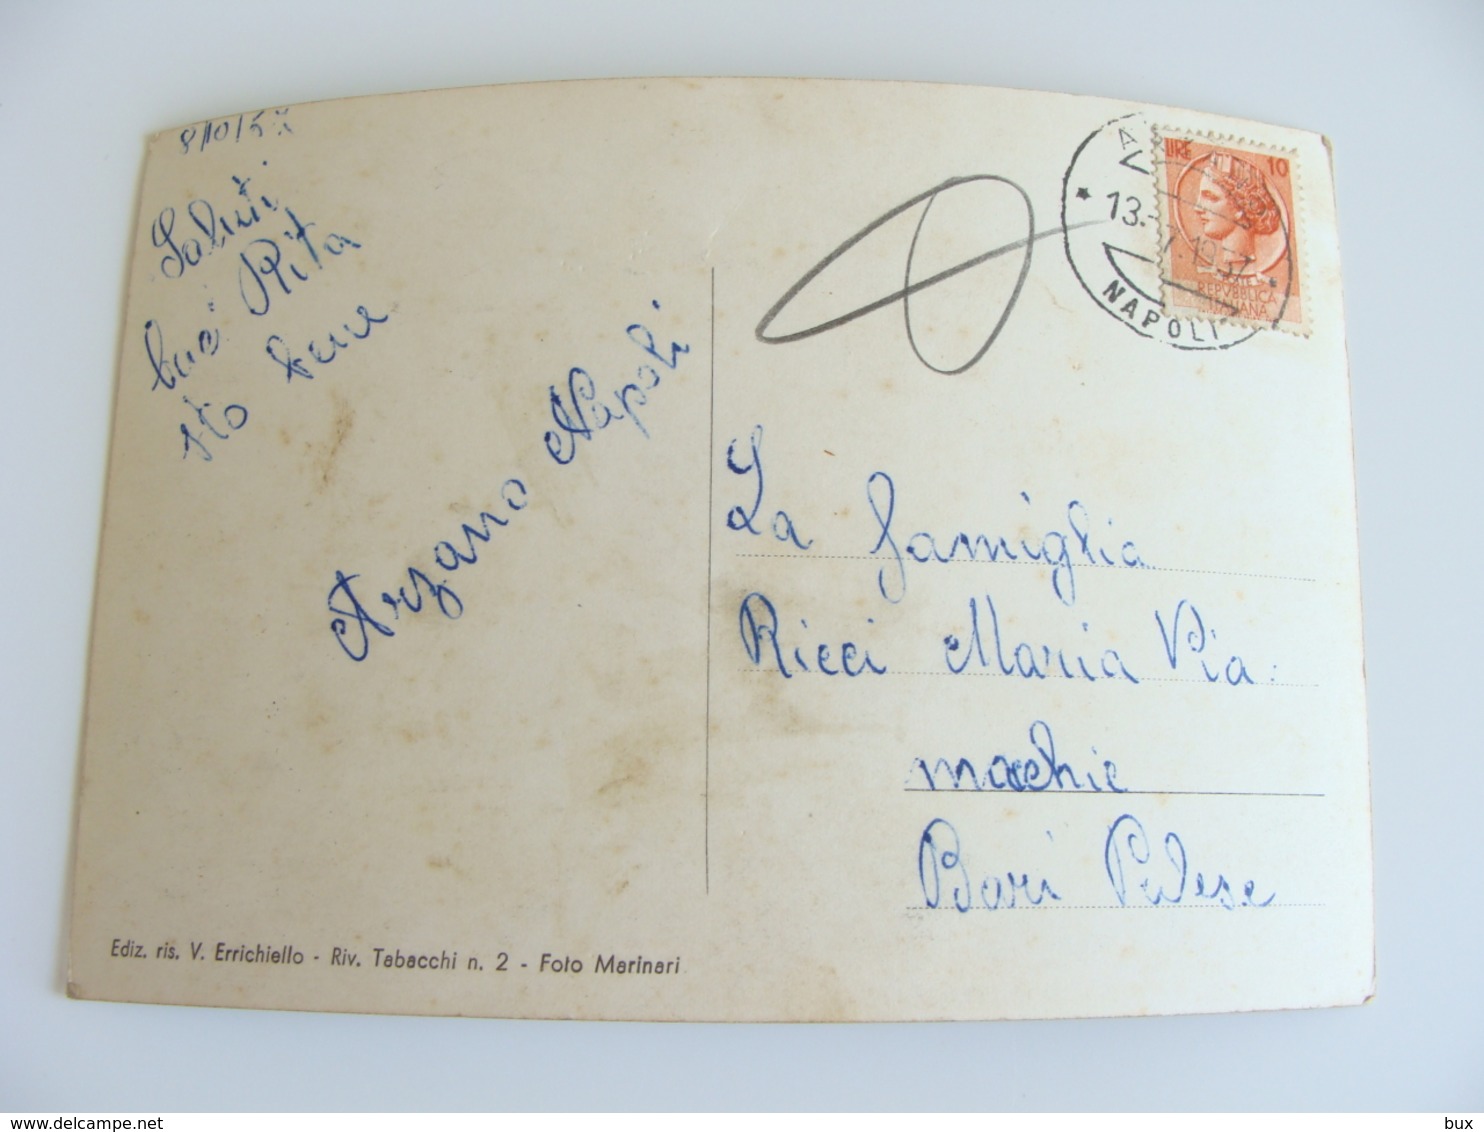 8/10/57
Saluti
baci Rita
sto bene
Arzano Napoli
LIRE 10
13.-7.1957
NAPOLI
REPVBBLICA
ITALIANA
La famiglia
Ricci Maria Pia
macchie
Bari Palese
Ediz. ris. V. Errichiello - Riv. Tabacchi n. 2 - Foto Marinari
delcampe.net
bux